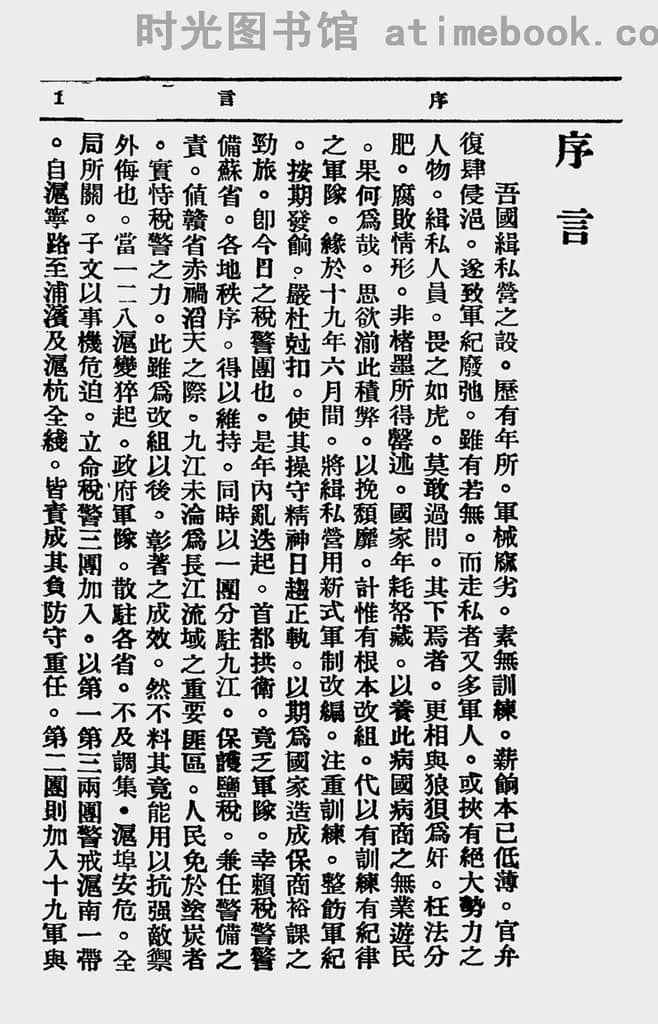 时光图书馆 atimebook.co
序 言 1
序言
吾國緝私營之設。歷有年所。軍械窳劣。素無訓練。薪餉本已低薄。官弁
復肆侵浥。遂致軍紀廢弛。雖有若無。而走私者又多軍人。或挾有絕大勢力之
人物。緝私人員。畏之如虎。莫敢過問。其下焉者。更相與狼狽爲奸。枉法分
肥。腐敗情形。非楮墨所得罄述。國家年耗帑藏。以養此病國病商之無業遊民
。果何爲哉。思欲湔此積弊。以挽頹靡。計惟有根本改組。代以有訓練有紀律
之軍隊。緣於十九年六月間。將緝私營用新式軍制改編。注重訓練。整飭軍紀
。按期發餉。嚴杜尅扣。使其操守精神日趨正軌。以期爲國家造成保商裕課之
勁旅。卽今日之稅警團也。是年內亂迭起。首都拱衛。竟乏軍隊。幸賴稅警警
備蘇省。各地秩序。得以維持。同時以一團分駐九江。保護鹽稅。兼任警備之
責。値贛省赤禍滔天之際。九江未淪爲長江流域之重要匪區。人民免於塗炭者
。實恃稅警之力。此雖爲改組以後。彰著之成效。然不料其竟能用以抗强敵禦
外侮也。當一二八滬變猝起。政府軍隊。散駐各省。不及調集。滬埠安危。全
局所關。子文以事機危迫。立命稅警三團加入。以第一第三兩團警戒滬南一帶
。自滬寧路至浦濱及滬杭全綫。皆責成其負防守重任。第二團則加入十九軍與